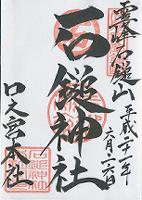 霊峰石鎚山
平成二十一年
六月二十六日
石鎚神社
口之宮本社